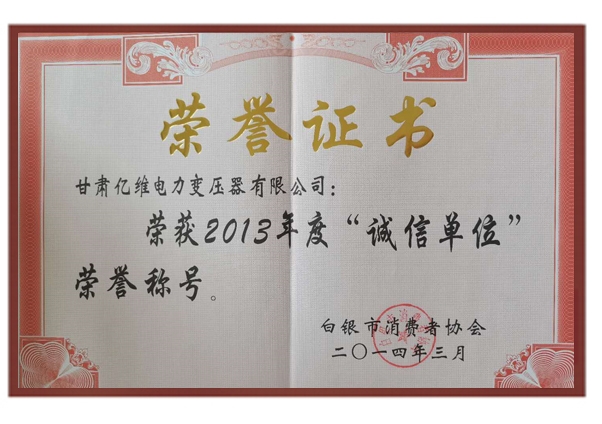 荣誉证书
甘肃亿维电力变压器有限公司：
荣获2013年度“诚信单位”
荣誉称号。
白银市消费者协会
二〇一四年三月